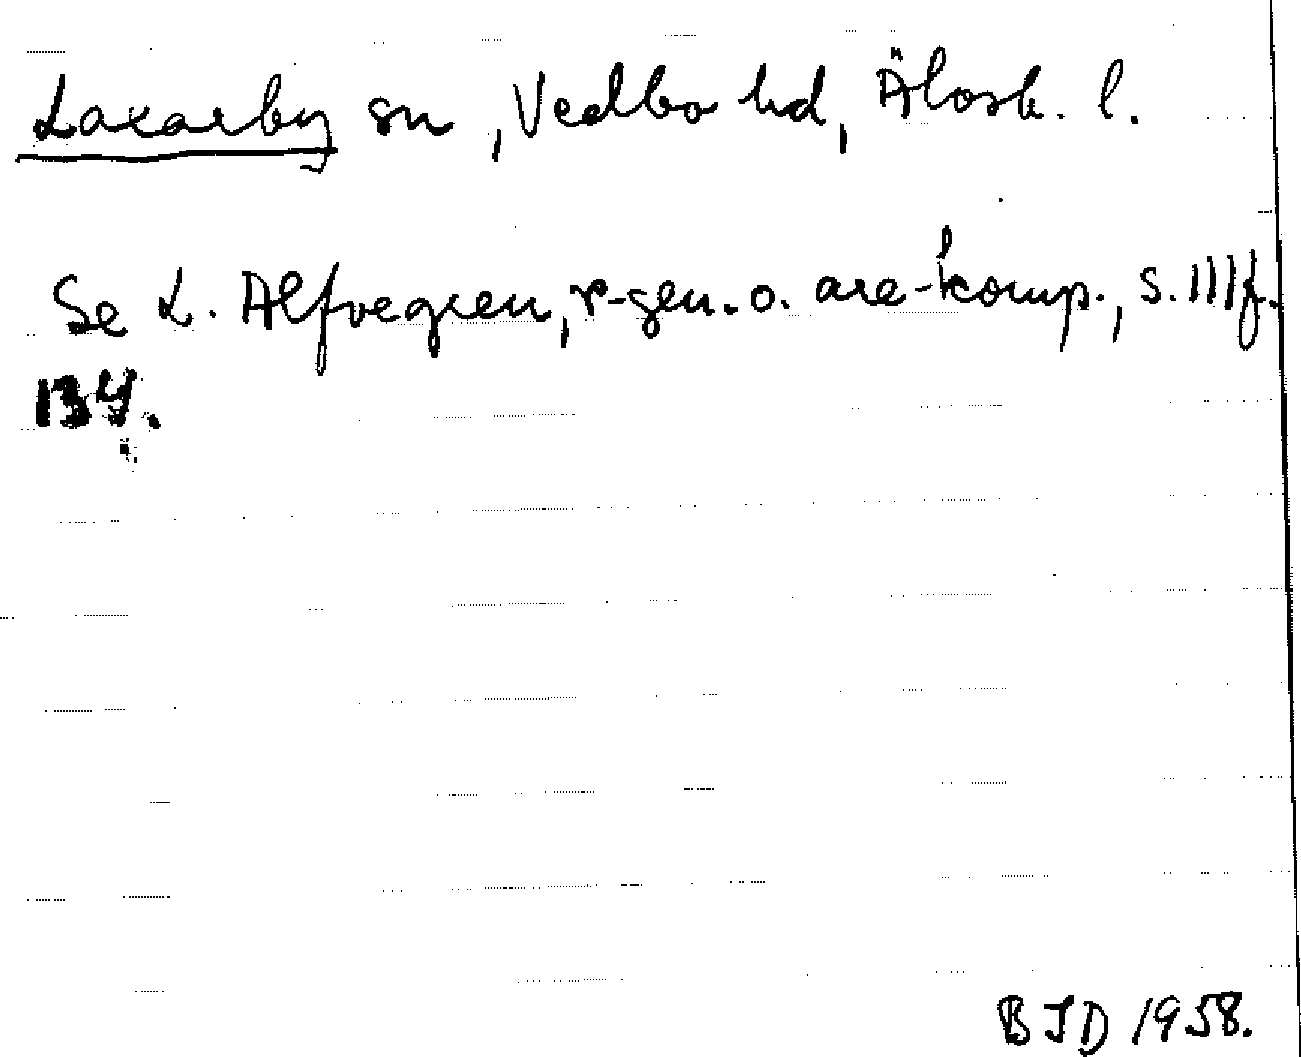 Laxarby sn, Vedbo hd, Älvsb. l.
Se L. Alfvegren, r-gen. o. are-komp., s. 111f.
134.
BJD 1958.